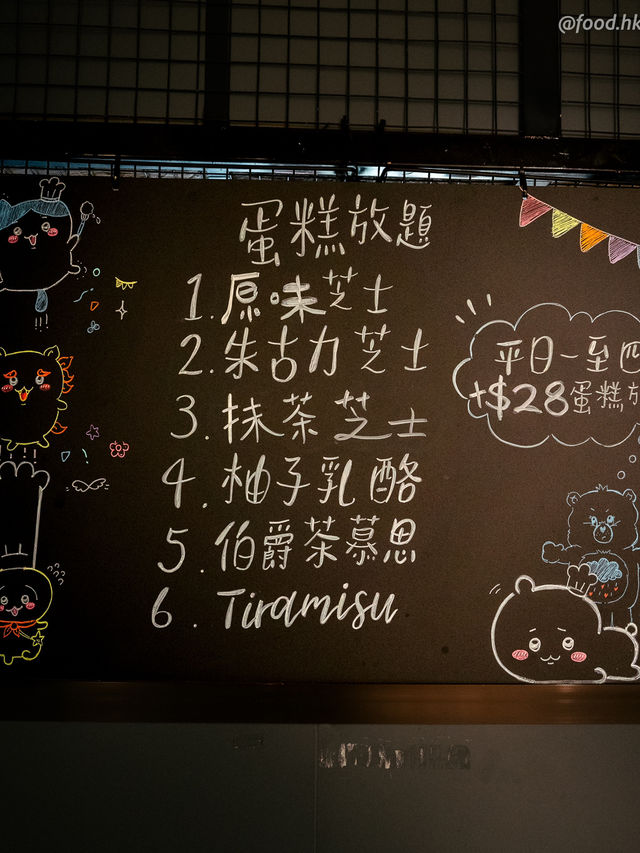 @food.hk
蛋糕放題
1. 原味芝士
2. 朱古力芝士
3. 抹茶芝士
4. 柚子乳酪
5. 伯爵茶慕思
6. Tiramisu
平日一至四
+$28蛋糕放